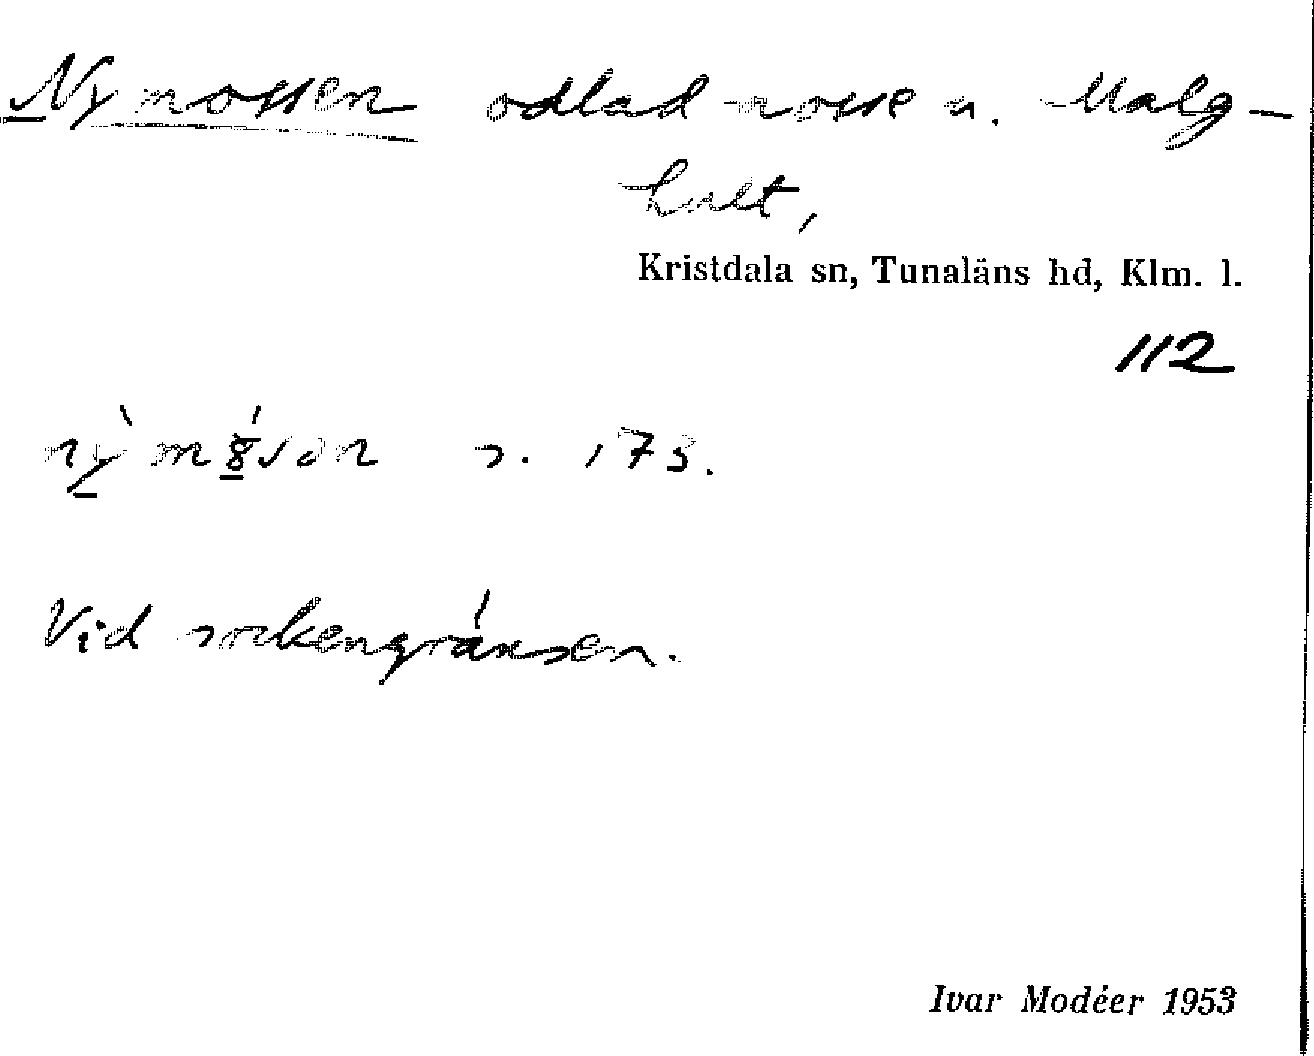 Nymossen odlad mosse u. Malg-
hult,
Kristdala sn, Tunaläns hd, Klm. l.
112
s. 173.
Vid sockengränsen.
Ivar Modéer 1953